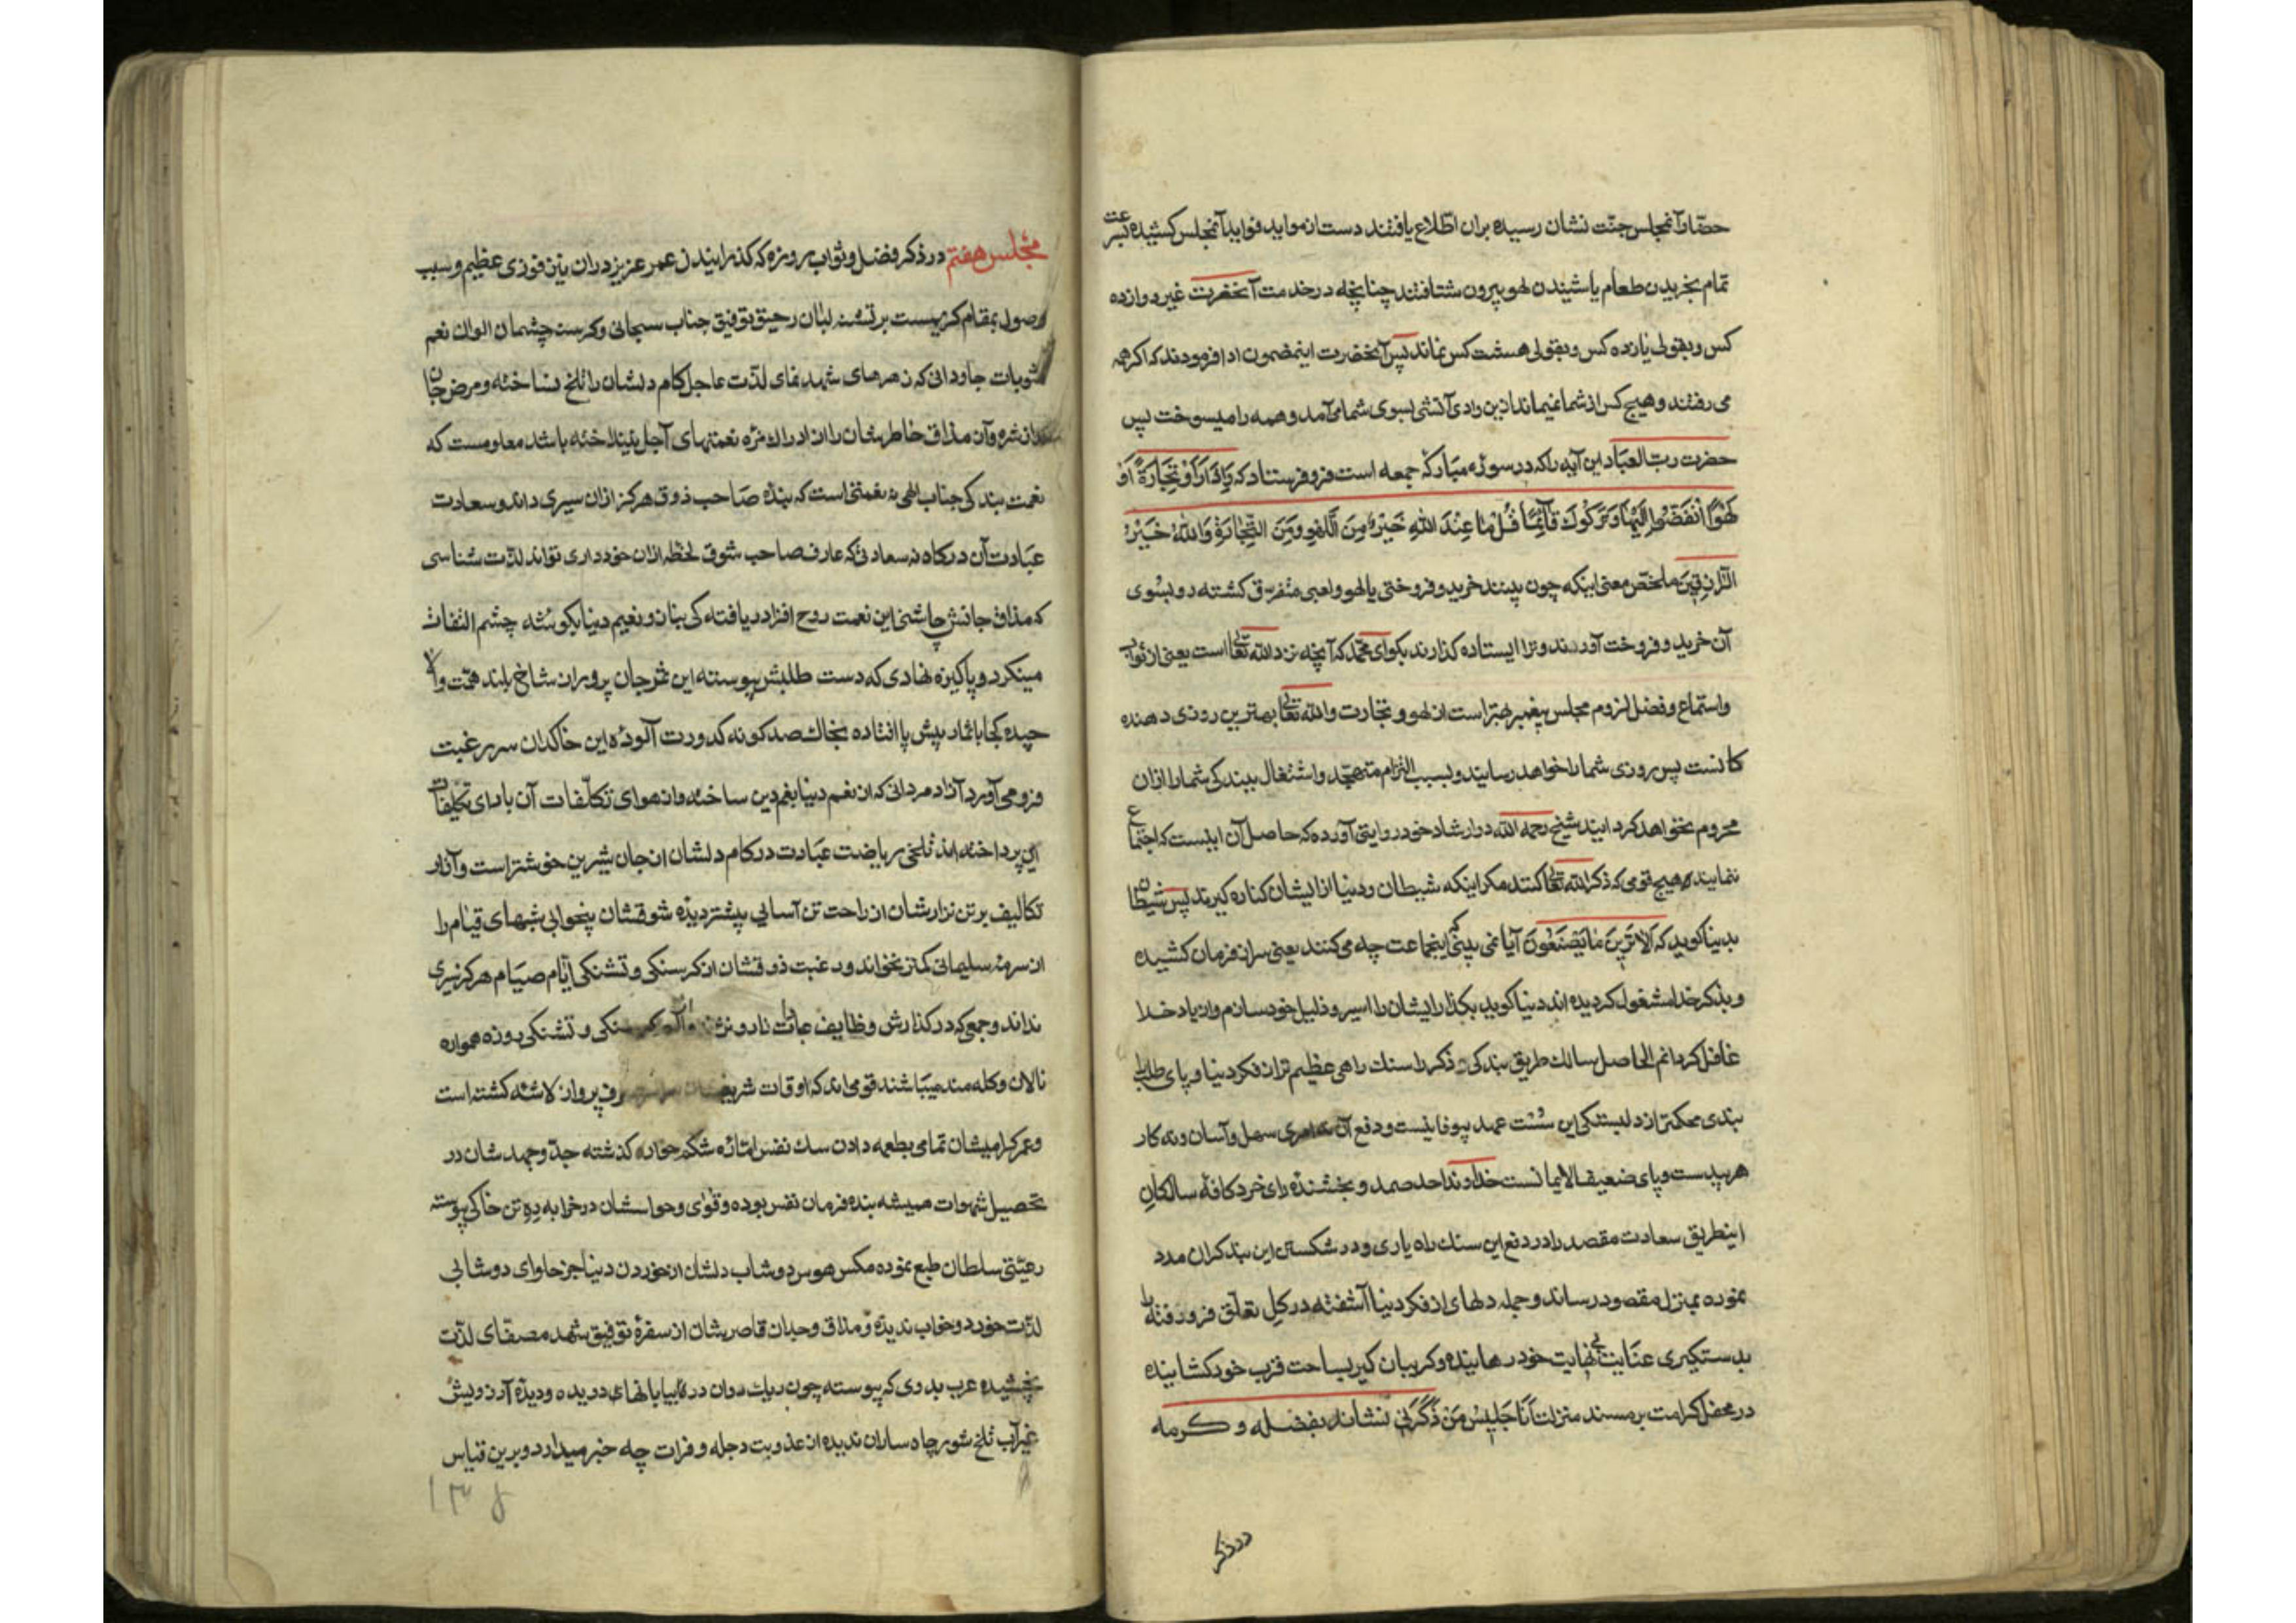 حضار آنمجلس جنت نشان رسیده بران اطّلاع یافتند دست از موايد فوايد آنمجلس کشیده بسرعت
تمام بخریدن طعام یا شنیدن لهو بیرون شتافتند چنانچه در خدمت آنحضرت غیر دوازده
کس و بقولی یازده کس و بقولی هشت کس نماند پس آنحضرت اینمضمون ادا فرمودند که اکر همه
می رفتند و هیچ کس از شما نمیماند ازین وادی آتشی بسوی شما می آمد و همه را میسوخت پس
حضرت ربّ العباد این آیه را که در سورهٔ مبارکهٔ جمعه است فرو فرستاد که وَإِذَا رَأَوْا تِجَارَةً أَوْ
لَهْوًا انْفَضُّوا إِلَيْهَا وَتَرَكُوكَ قَائِمًا قُلْ مَا عِنْدَ اللَّهِ خَيْرٌ مِنَ اللَّهْوِ وَمِنَ التِّجَارَةِ وَاللَّهُ خَيْرُ
الرَّازِقِينَ ملخّص معنی اینکه چون ببینند خرید و فروختی یا لهو و لعبی متفرق کشته رو بسوی
آن خرید و فروخت آورند و ترا ایستاده کذارند بکو ای محمّد که آنچه نزد الله تعالی است یعنی از ثواب
و استماع و فضل لزوم مجلس پیغمبر بهتر است از لهو و تجارت و الله تعالی بهترین روزی دهنده
کانست پس روزی شما را خواهد رسانید و بسبب التزام تهجّد و اشتغال ببندکی شما را ازان
محروم نخواهد کردانید شیخ رحمه الله در ارشاد خود روایتی آورده که حاصل آن اینست که اجتماع
ننمایند هیچ قومی که ذکر الله تعالی کنند مکر اینکه شیطان و دنیا از ایشان کناره کیرند پس شیطان
بدنیا کوید که اَلا تَرَینَ مَا یَصنَعُونَ آیا نمی بینی که اینجماعت چه می کنند یعنی سر از فرمان کشیده
و بذکر خدا مشغول کردیده اند دنیا کوید بکذار ایشان را اسیر و ذلیل خود سازم و از یاد خدا
غافل کردانم الحاصل سالک طریق بندکی و ذکر را سنک راهی عظیم تر از فکر دنیا و پای طلب را
بندی محکمتر از دلبستکی این سُست عهد بیوفا نیست و دفع آن سهل و آسان و نه کار
هر بیدست و پای ضعیف الایمانست خداوند احد صمد و بخشندهٔ رای خرد کافهٔ سالکان
اینطریق سعادت مقصد را در دفع این سنک راه یاری و در شکستن این بند کران مدد
نموده بمنزل مقصود رساند و جمله دلهای از فکر دنیا آشفته در کل تعلّق فرو رفته را
بدستکیری عنایت بی نهایت خود رهانیده و کریبان کیر بساحت قرب خود کشانیده
در محفل کرامت بر مسند منزلت اَنَا جَلِیسُ مَن ذَکَرَنِی نشاند بفضله و کرمه
در ذکر
مجلس هفتم در ذکر فضل و ثواب روزه که کذرانیدن عمر عزیز دران فوزی عظیم و سبب
وصول بمقام کریمست بر تشنه لبان رحیق توفیق جناب سبحانی و کرسنه چشمان الوان نعم
مثوبات جاودانی که زهرهای شهد نمای لذّت عاجل کام دلشان را تلخ نساخته و مرض جان
مذاق خاطرشان را از ادراک مزه نعمتهای آجل نینداخته باشد معلومست که
نعمت بندکی جناب الهی نه نعمتی است که بندهٔ صاحب ذوق هرکز ازان سیری داند و سعادت
عبادت آن درکاه نه سعادتی که عارف صاحب شوق لحظهٔ ازان خودداری تواند لذّت شناسی
که مذاق جانش چاشنی این نعمت روح افزا دریافته کی بناز و نعیم دنیا بکوشه چشم التفات
مینکرد و پاکیزه نهادی که دست طلبش پیوسته این ثمر جان پرور از شاخ بلند همّت والا
چیده کجا باثمار پیش پا افتاده بخاک صد کونه کدورت آلودهٔ این خاکدان سر رغبت
فرو می آورد آزاد مردانی که از نعم دنیا بغم دین ساخته و از هوای تکلّفات آن باد ای تکلیفات
این پرداخته اند تلخی ریاضت عبادت در کام دلشان از جان شیرین خوشتر است و آزار
تکالیف بر تن نزارشان از راحت تن آسانی بیشتر دیدهٔ شوقشان بیخوابی شبهای قیام را
از سرمهٔ سلیمانی کمتر نخواند و رغبت ذوقشان از کرسنکی و تشنکی ایّام صیام هرکز سیری
نداند و جمعی که در کذارش وظایف طاعات کرسنکی و تشنکی روزه همواره
نالان و کله مند میباشند قومی اند که اوقات شریفشان پروار لاشه کشته است
و عمر کرامیشان تمامی بطعمه دادن سک نفس امّاره شکم خواره کذشته جدّ و جهد شان در
تحصیل شهوات همیشه بنده فرمان نفس بوده و قوای و حواسشان در خرابه دِهِ تن خاکی پیوسته
رعیّتی سلطان طبع نموده مکس هوس دوشاب دلشان از خوردن دنیا جز حلوای دوشابی
لذّت خورد و خواب ندیده و مذاق وجدان قاصرشان از سفرهٔ توفیق شهد مصفّای لذّت
نچشیده عرب بدوی که پیوسته چون ریک روان در بیابانهای دویده و دیدهٔ آرزویش
غیر آب تلخ شور چاه ساران ندیده از عذوبت دجله و فرات چه خبر میدارد و برین قیاس